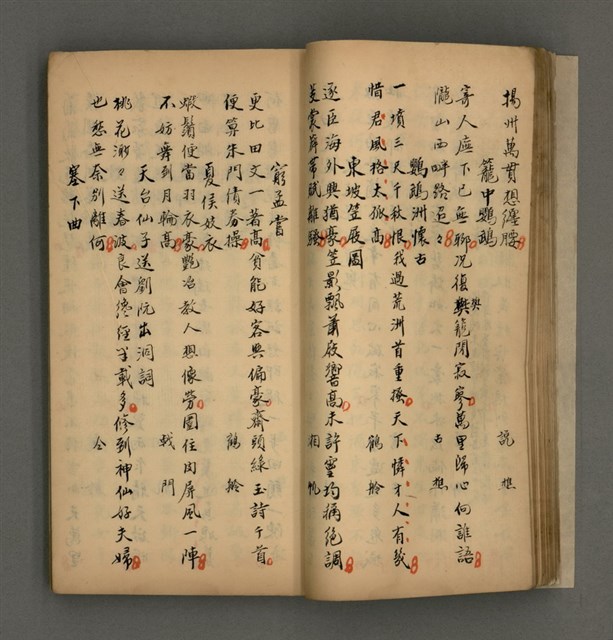 揚州萬貫想纏腰
籠中鸚鵡 說想
寄人廡下已無聊況復樊籠閉寂寥萬里歸心何誰語
隴山西畔路迢々 占想
鸚鵡洲懷古
一墳三尺千秋恨我過荒洲首重搔天下憐才人有幾
惜君風格太孤高 鶴舲
東坡笠屐圖
逐臣海外興猶豪笠影飄蕭屐響高未許靈均稱絕調
芰裳荷帶賦離騷 相帆
窮孟嘗
更比田文一著高貧能好客興偏豪齋頭綠玉詩千首
便算朱門債券操 鶴舲
夏侯妓衣
蝦鬚便當羽衣豪艷冶教人想像勞圍住肉屏風一陣
不妨舞到月輪高 戟門
天台仙子送劉阮出洞詞
桃花澈々送春波良會纔經半載多修到神仙好夫婦
也愁無奈別離何 仝
塞下曲